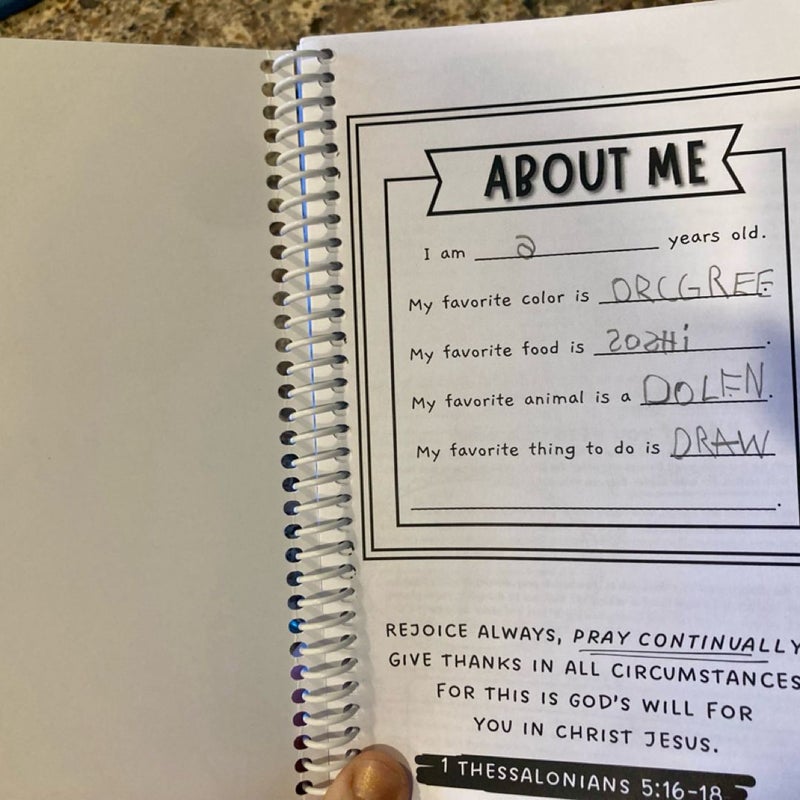 ABOUT ME
I am 2 years old.
My favorite color is DRCGREE.
My favorite food is SOSHi.
My favorite animal is a DOLEN.
My favorite thing to do is DRAW
.
REJOICE ALWAYS, PRAY CONTINUALLY
GIVE THANKS IN ALL CIRCUMSTANCES
FOR THIS IS GOD'S WILL FOR
YOU IN CHRIST JESUS.
1 THESSALONIANS 5:16-18